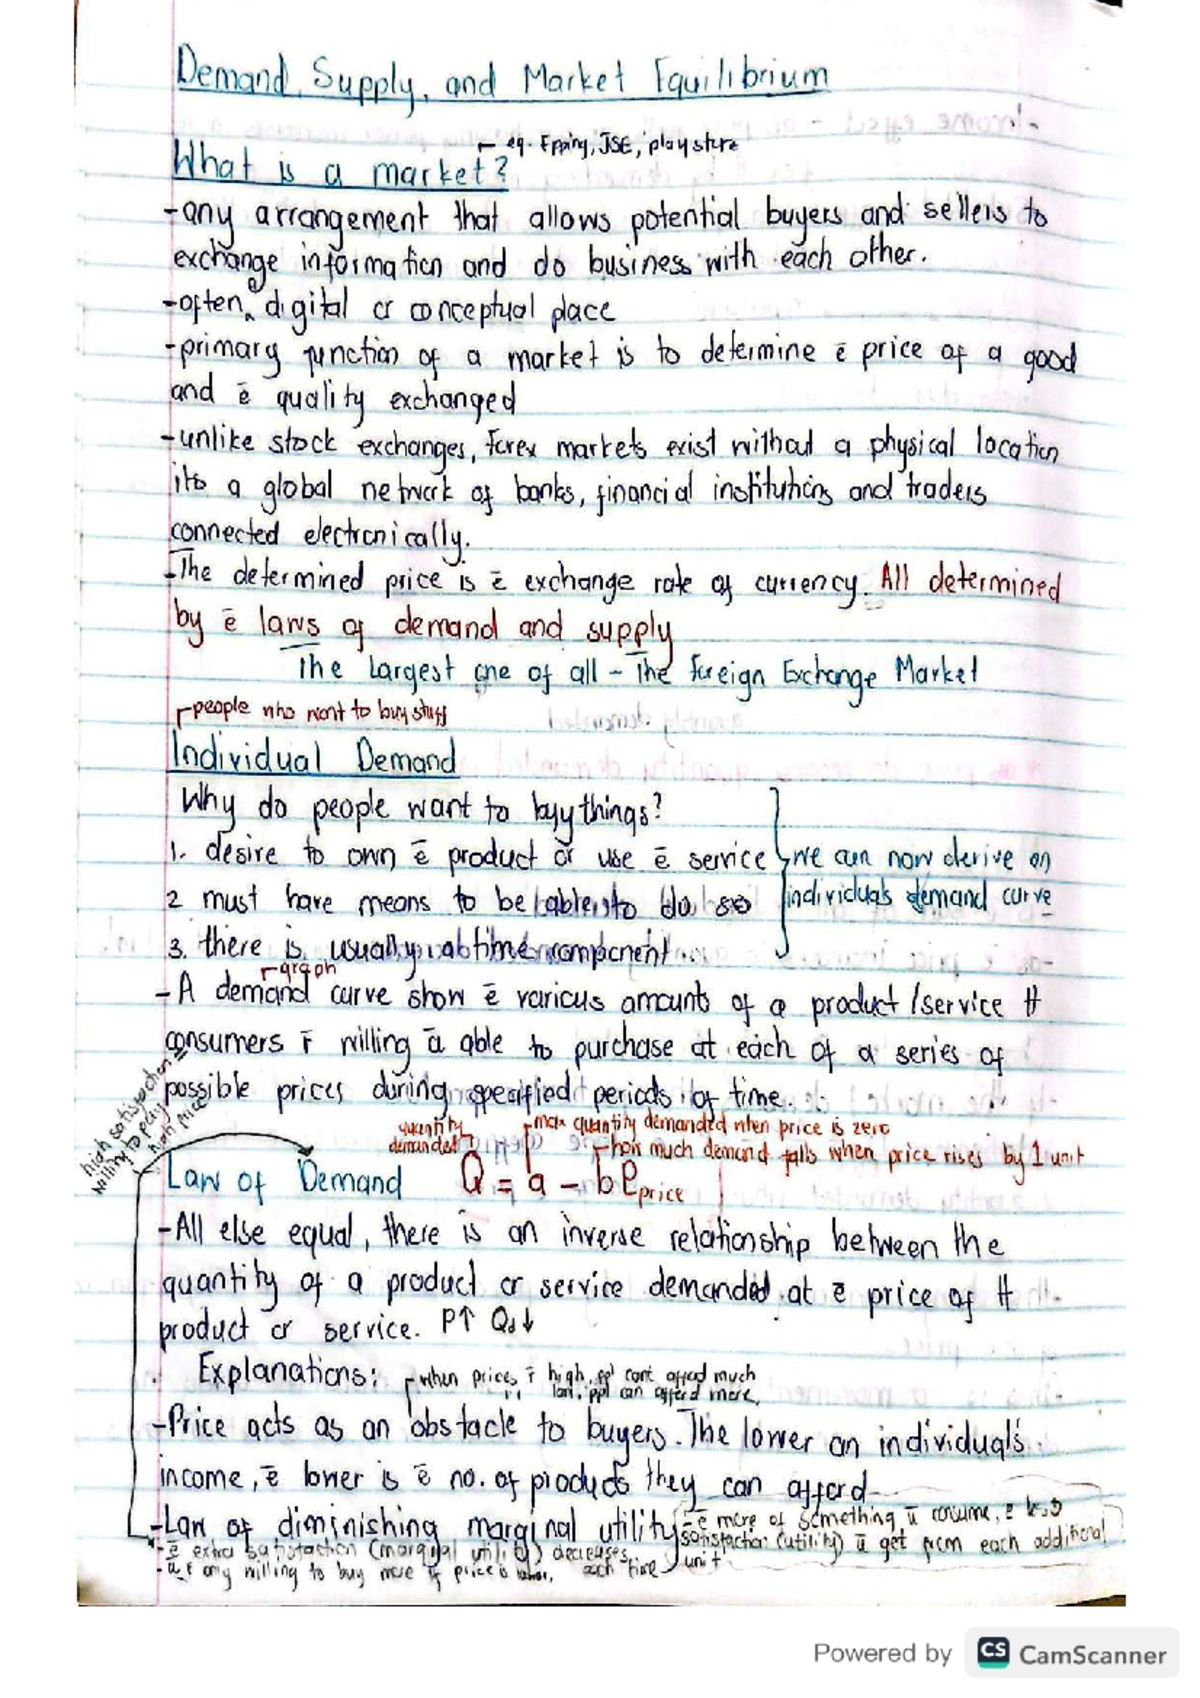 Demand, Supply, and Market Equilibrium
eg. Epping, JSE, playstore
What is a market?
-any arrangement that allows potential buyers and sellers to
exchange information and do business with each other.
-often a digital or conceptual place
-primary function of a market is to determine ē price of a good
and ē quality exchanged
-unlike stock exchanges, forex markets exist without a physical location
its a global network of banks, financial institutions and traders
connected electronically.
-The determined price is ē exchange rate of currency. All determined
by ē laws of demand and supply
The largest one of all - The Foreign Exchange Market
people who want to buy stuff
Individual Demand
Why do people want to buy things?
1. desire to own ē product or use ē service
2 must have means to be able to do so
3. there is usually a time component
we can now derive an
individuals demand curve
graph
-A demand curve show ē various amounts of a product/service tt
consumers r̄ willing ā able to purchase at each of a series of
possible prices during specified periods of time.
high satisfaction
willing to pay
high price
quantity
demanded
max quantity demanded when price is zero
how much demand falls when price rises by 1 unit
Law of Demand Q = a - bP price
-All else equal, there is an inverse relationship between the
quantity of a product or service demanded at ē price of tt
product or service. P↑ Qd↓
Explanations:
when prices r̄ high, ppl cant afford much
" " low, ppl can afford more,
-Price acts as an obstacle to buyers. The lower an individual's
income, ē lower is ē no. of products they can afford
-Law of diminishing marginal utility
ē more of something ū consume, ē less
satisfaction (utility) ū get from each additional
unit
-ē extra satisfaction (marginal utility) decreases
each time
-ū r̄ only willing to buy more if price is lower,
Powered by CS CamScanner